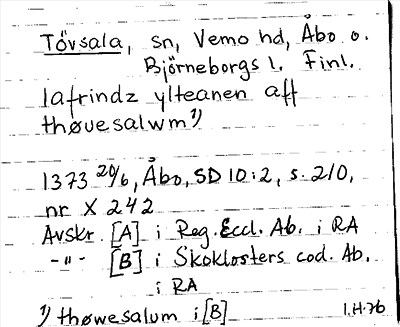 Tövsala, sn, Vemo hd, Åbo o.
Björneborgs l. Finl.
lafrindz ylteanen aff
thøuesalwm¹⁾
1373 20/6, Åbo, SD 10:2, s. 210,
nr X 242
Avskr. [A] i Reg. Eccl. Ab. i RA
-"- [B] i Skoklosters cod. Ab.
i RA
¹⁾ thøwesalum i [B] I.H-76